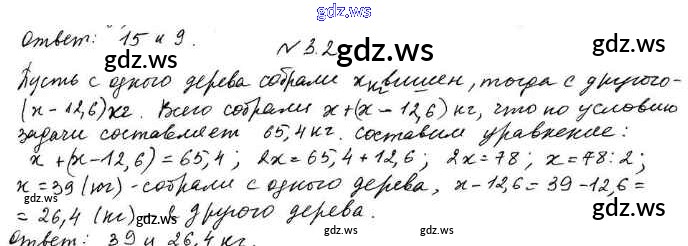 reshak.ru
Ответ: 15 и 9.
№ 3.2
Пусть с одного дерева собрали x кг вишен, тогда с другого-
(x-12,6) кг. Всего собрали x+(x-12,6) кг, что по условию
задачи составляет 65,4 кг. составим уравнение:
x+(x-12,6)=65,4; 2x=65,4+12,6; 2x=78; x=78:2;
x=39 (кг) - собрали с одного дерева, x-12,6=39-12,6=
=26,4 (кг) с другого дерева.
Ответ: 39 и 26,4 кг.